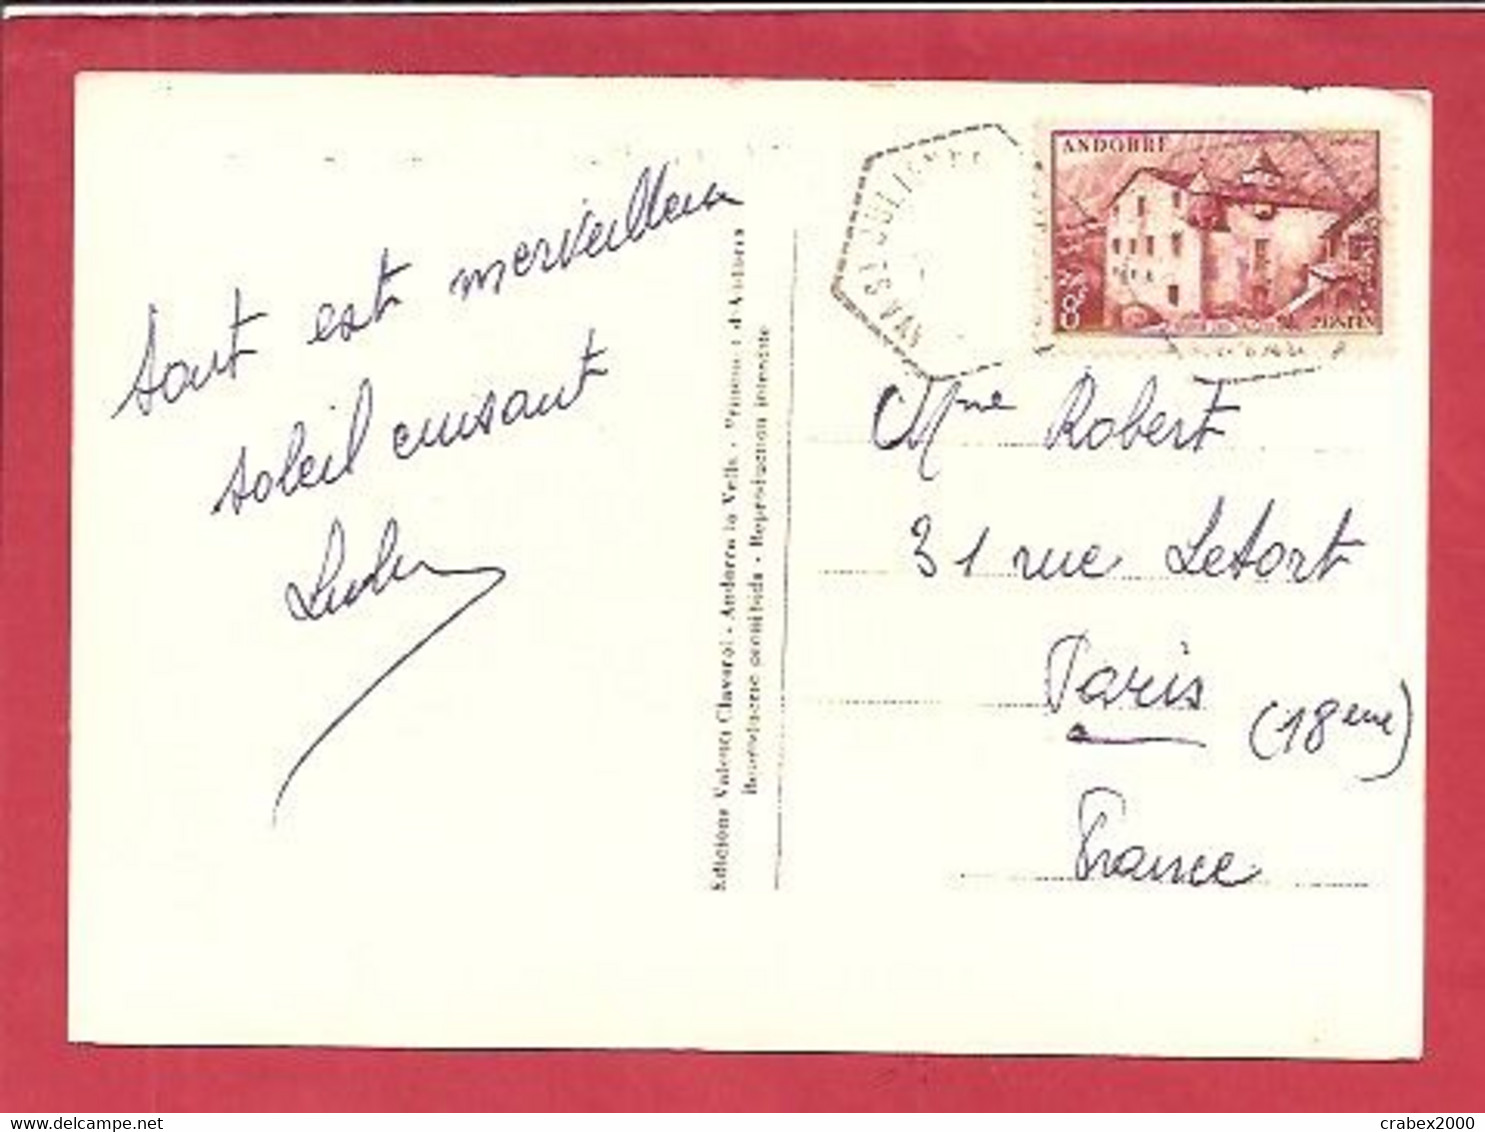 tout est merveilleux
soleil cuisant
Lulu
Edicions Valentí Claverol - Andorra la Vella - Principat d'Andorra
Reproducció prohibida - Reproduction interdite
ANDORRE
8F
POSTES
Mme Robert
31 rue Letort
Paris
(18eme)
France
delcampe.net
crabex2000